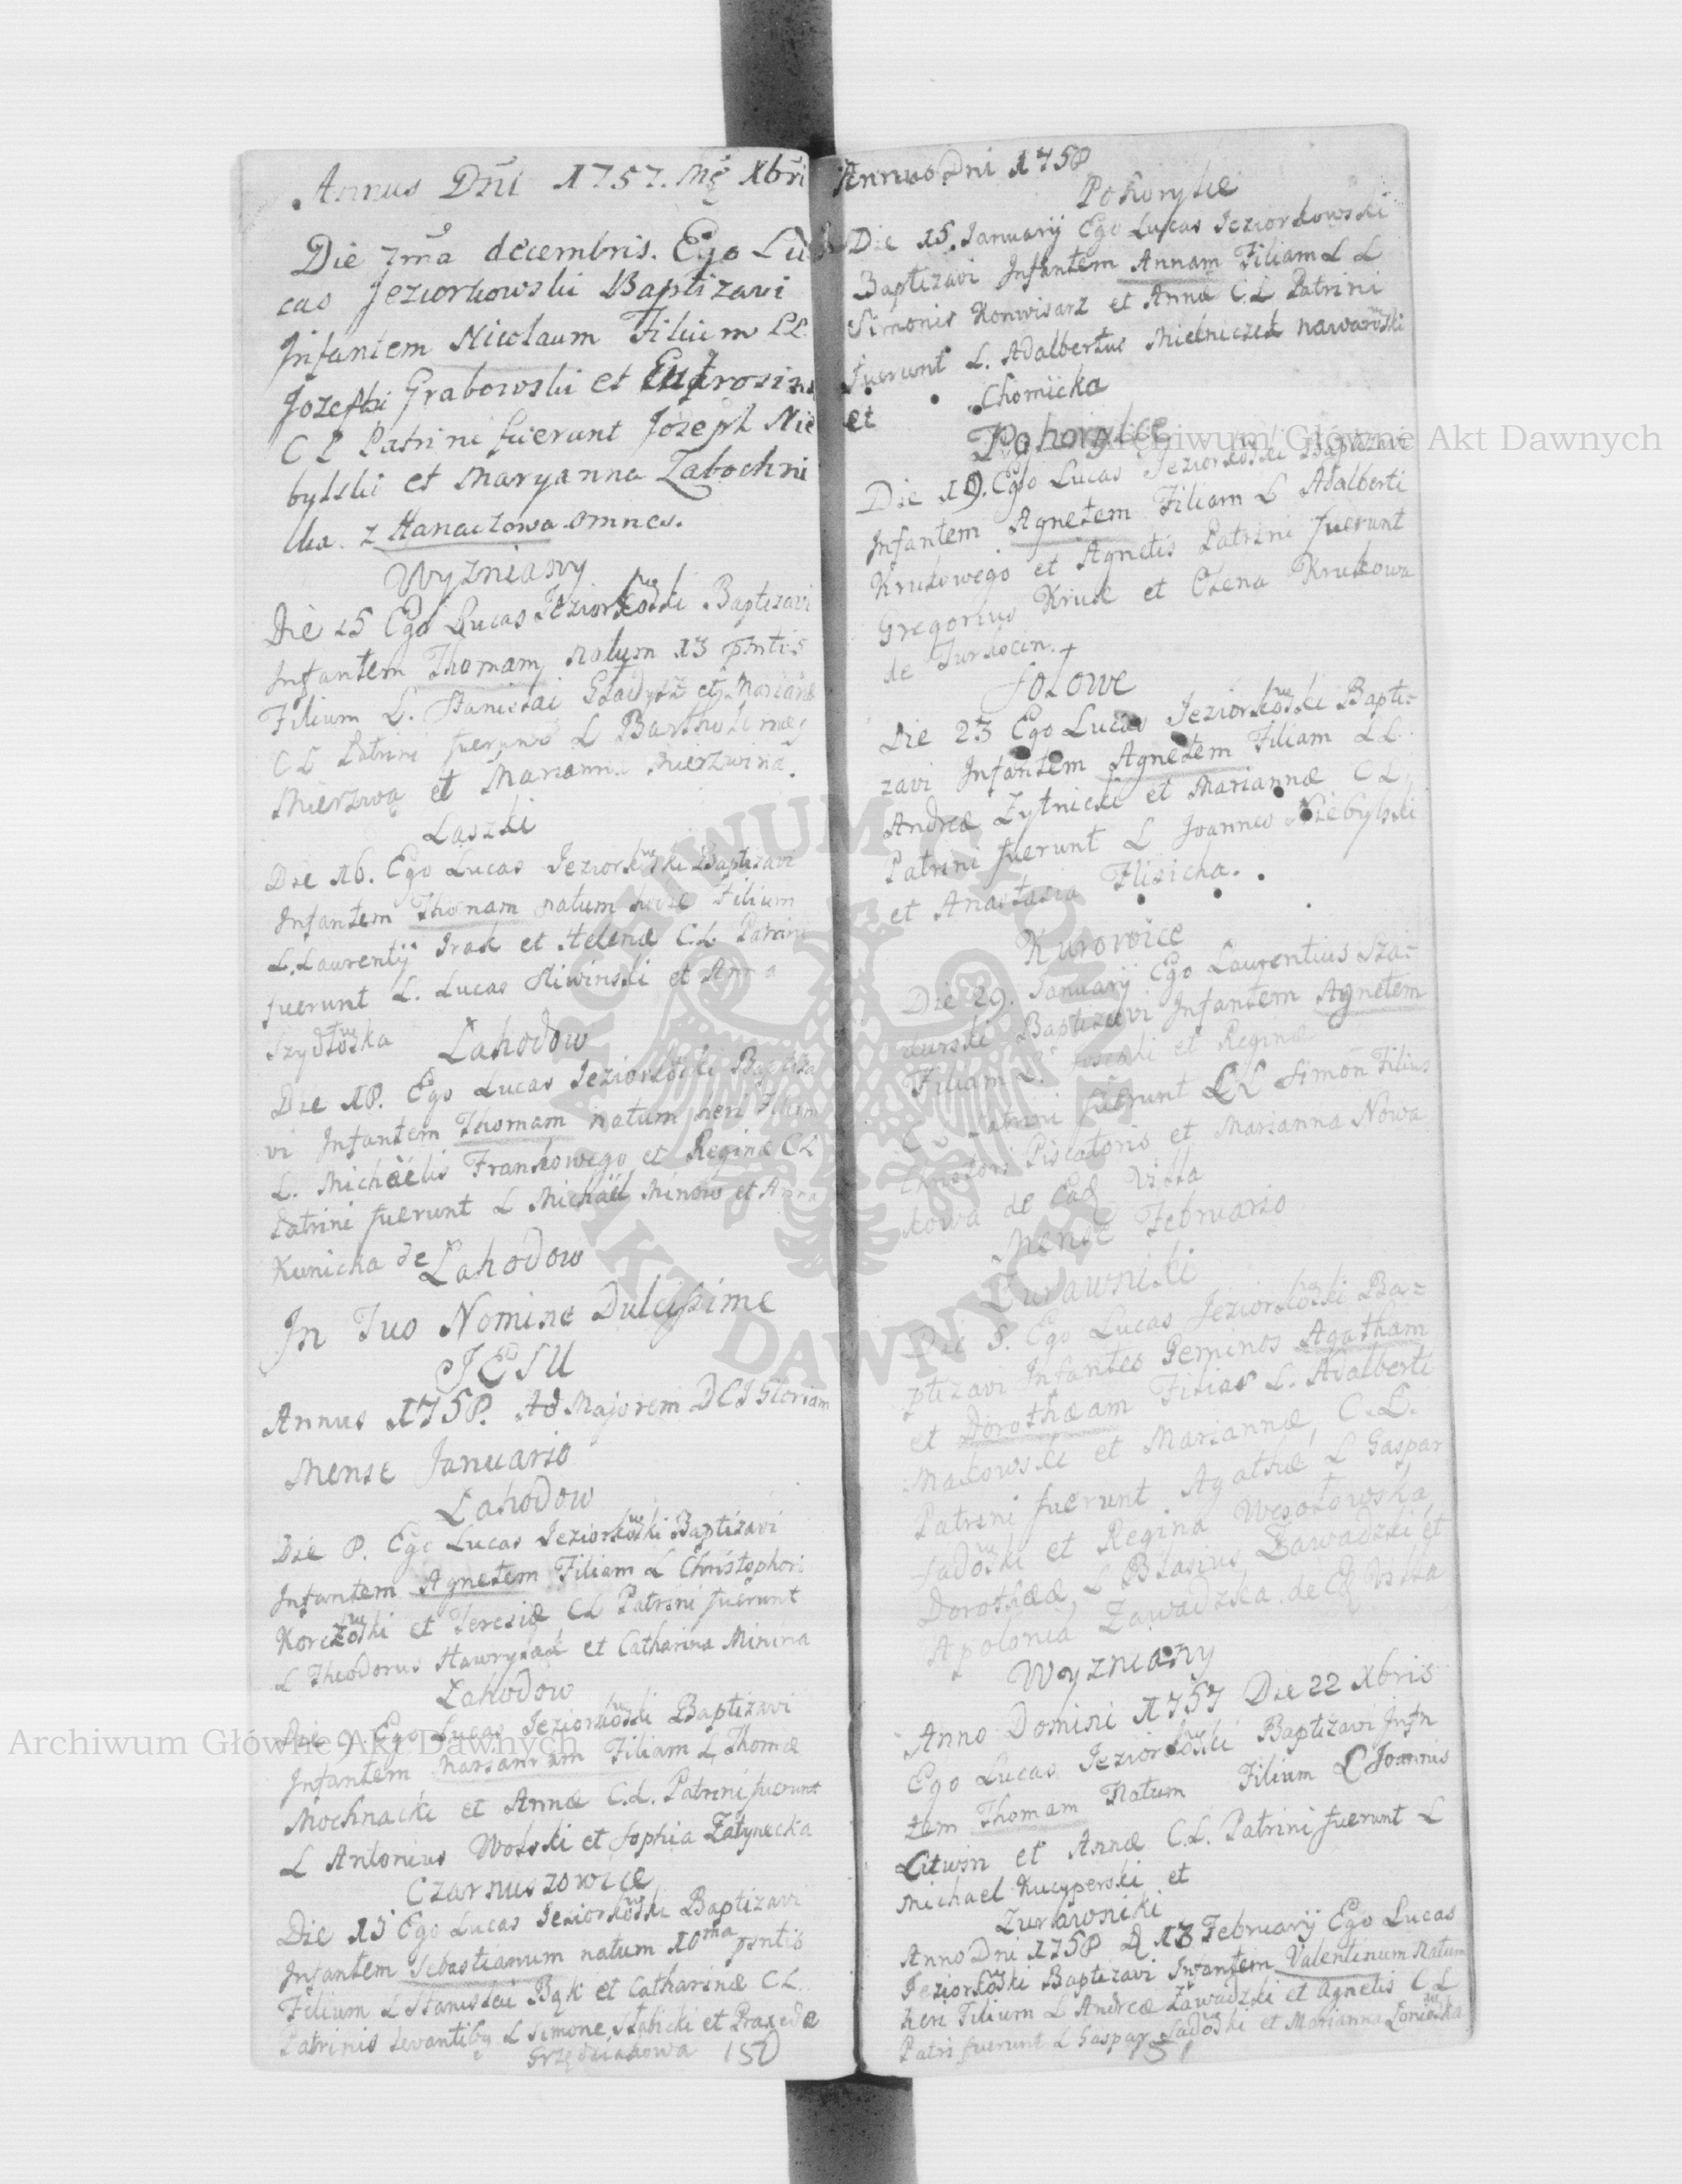 Annus Dñi 1757. Mẽ Xbri
Die 7mã decembris. Ego Lu
cas Jeziorkowski Baptizavi
Infantem Nicolaum Filium LL
Jozephi Grabowski et Eufrosin
C L Patrini fuerunt Jozeph Nie
bylski et Maryanna Zabochni
cka. z Hanaczowa omnes.
Wyzniany
Die 15 Ego Lucas Jeziorkowski Baptizavi
Infantem Thomam natum 13 pñtis
Filium L. Stanislai Gładysz et Mariañæ
C L Patrini fuerunt L Bartholomæy
Mierzwa et Marianna Mierzwina.
Laszki
Die 16. Ego Lucas Jeziorkowski Baptizavi
Infantem Thomam natum Filium
L. Laurentij Irak et Helenæ C.L. Patrini
fuerunt L. Lucas Sliwinski et Anna
Szydłowska
Lahodow
Die 18. Ego Lucas Jeziorkowski Baptiza
vi Infantem Thomam natum heri Filium
L. Michäelis Frankowego et Reginæ C L
Patrini fuerunt L Michäel Minow et Anna
Kunicka de Lahodow
In Tuo Nomine Dulcissime
JESU
Annus 1758. Ad Majorem DEI Gloriam
Mense Januario
Lahodow
Die 8. Ego Lucas Jeziorkowski Baptizavi
Infantem Agnetem Filiam L Christophori
Korczowski et Teresiæ C L Patrini fuerunt
L Theodorus Hawrylak et Catharina Minina
Lahodow
Die 9. Ego Lucas Jeziorkowski Baptizavi
Infantem Mariannam Filiam L Thomæ
Mochnacki et Annæ C.L. Patrini fuerunt
L Antonius Wolski et Sophia Zatynecka
Czarnuszowice
Die 15 Ego Lucas Jeziorkowski Baptizavi
Infantem Sebastianum natum 10ma pñtis
Filium L Stanislai Bąk et Catharinæ C L.
Patrinis Levantibq L Simone Słabicki et Praxeda
Grzędziakowa 150
Annus Dni 1758
Pohorylce
Die 15. Januarij Ego Lucas Jeziorkowski
Baptizavi Infantem Annam Filiam L L
Simonis Konwisarz et Annæ C L Patrini
fuerunt L. Adalbertus Mielniczek nawarowski
et Chomicka
Pohorylce
Die 19. Ego Lucas Jeziorkowski Baptizavi
Infantem Agnetem Filiam L Adalberti
Krukowego et Agnetis Patrini fuerunt
Gregorius Kruk et Elena Krukowa
de Turkocin.
Sołowe
Die 23 Ego Lucas Jeziorkowski Bapti=
zavi Infantem Agnetem Filiam LL
Andreæ Zytnicki et Mariannæ C L.
Patrini fuerunt L Joannes Niebylski
et Anastasia Flisicha.
Kurowice
Die 29. Januarij Ego Laurentius Szai=
durski Baptizavi Infantem Agnetem
Filiam L. Josephi et Reginæ
C L Patrini fuerunt LL Simon Filius
Piscatoris et Marianna Nowa
kowa de Eadq Villa
Mense Februario
Zurawniki
Die 5. Ego Lucas Jeziorkowski Ba=
ptizavi Infantes Geminos Agatham
et Dorothæam Filias L. Adalberti
Makowski et Mariannæ, C.L.
Patrini fuerunt Agathæ L Gaspar
Sadowski et Regina Wesołowska
Dorothææ L Blasius Zawadzki et
Apolonia Zawadzka de Eq Villa
Wyzniany
Anno Domini 1757 Die 22 Xbris
Ego Lucas Jeziorkowski Baptizavi Infn
tem Thomam Natum Filium L Joannis
Litwin et Annæ C.L. Patrini fuerunt L
Michael Kucyperski et
Zurawniki
Anno Dni 1758 D 13 Februarij Ego Lucas
Jeziorkowski Baptizavi Infantem Valentinum Natum
heri Filium L Andreæ Zawadzki et Agnetis C L
Patri fuerunt L Gaspar Sadowski et Marianna
151
Archiwum Główne Akt Dawnych
Archiwum Główne Akt Dawnych
ARCHIWUM GŁÓWNE AKT DAWNYCH